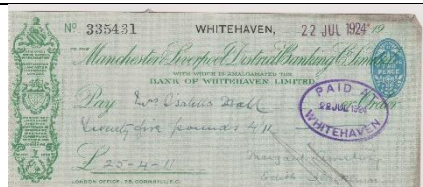 Nº 335431 WHITEHAVEN, 22 JUL 1924 19
Manchester & Liverpool District Banking Co. Limited
WITH WHICH IS AMALGAMATED THE
BANK OF WHITEHAVEN LIMITED
Pay Hall or Order
Twenty five pounds 4/11
£ 25-4-11
PAID
22 JUL 1924
WHITEHAVEN
LONDON OFFICE, 75, CORNHILL, E.C.